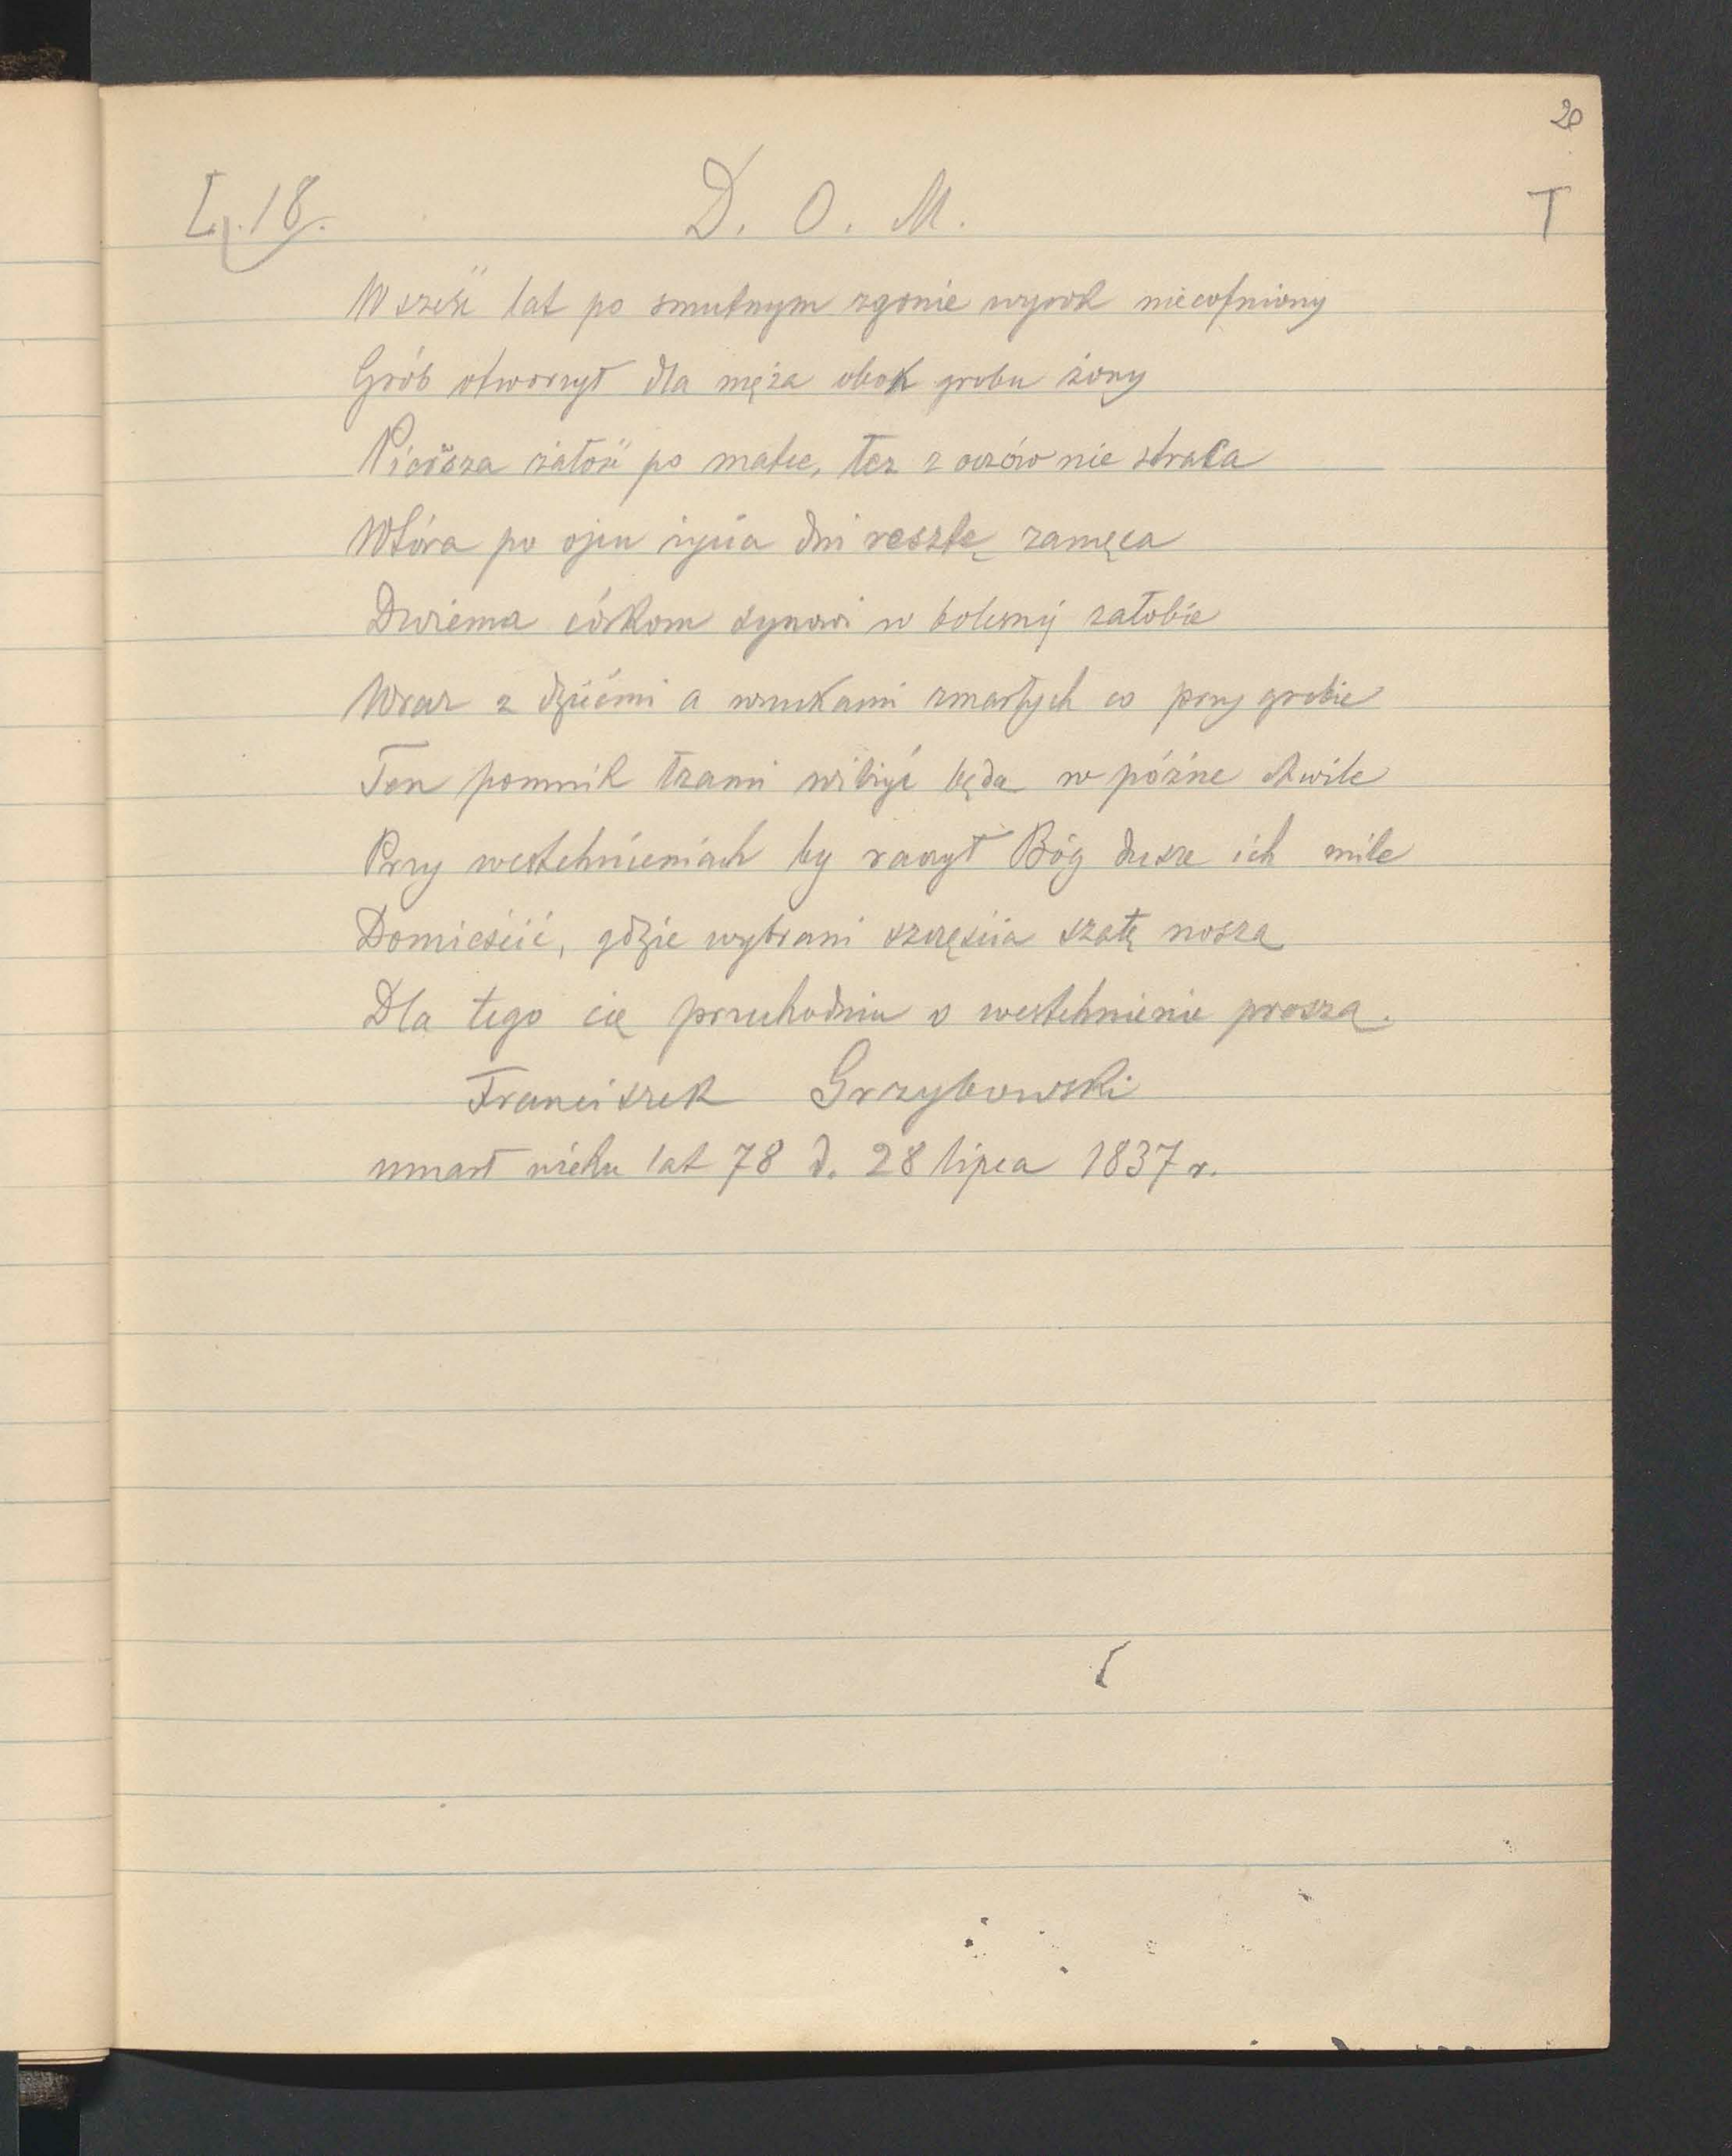 20
L. 18. D. O. M. T
W sześć lat po smutnym zgonie wyrok niecofniony
Grób otworzył dla męża obok grobu żony
Pierwsza żałość po matce, łez z oczów nie strąca
Wtóra po ojcu życia dni resztę zamęca
Dwiema córkom synowi w bolesnéj żałobie
Wraz z dziećmi a wnukami zmarłych co przy grobie
Ten pomnik łzami wilżyć będą w późne chwile
Przy westchnieniach by raczył Bóg dusze ich mile
Domieścić, gdzie wybrani szczęścia szatę noszą
Dla tego cię przechodniu o westchnienie proszą.
Franciszek Grzybowski
umarł wieku lat 78 d. 28 lipca 1837 r.